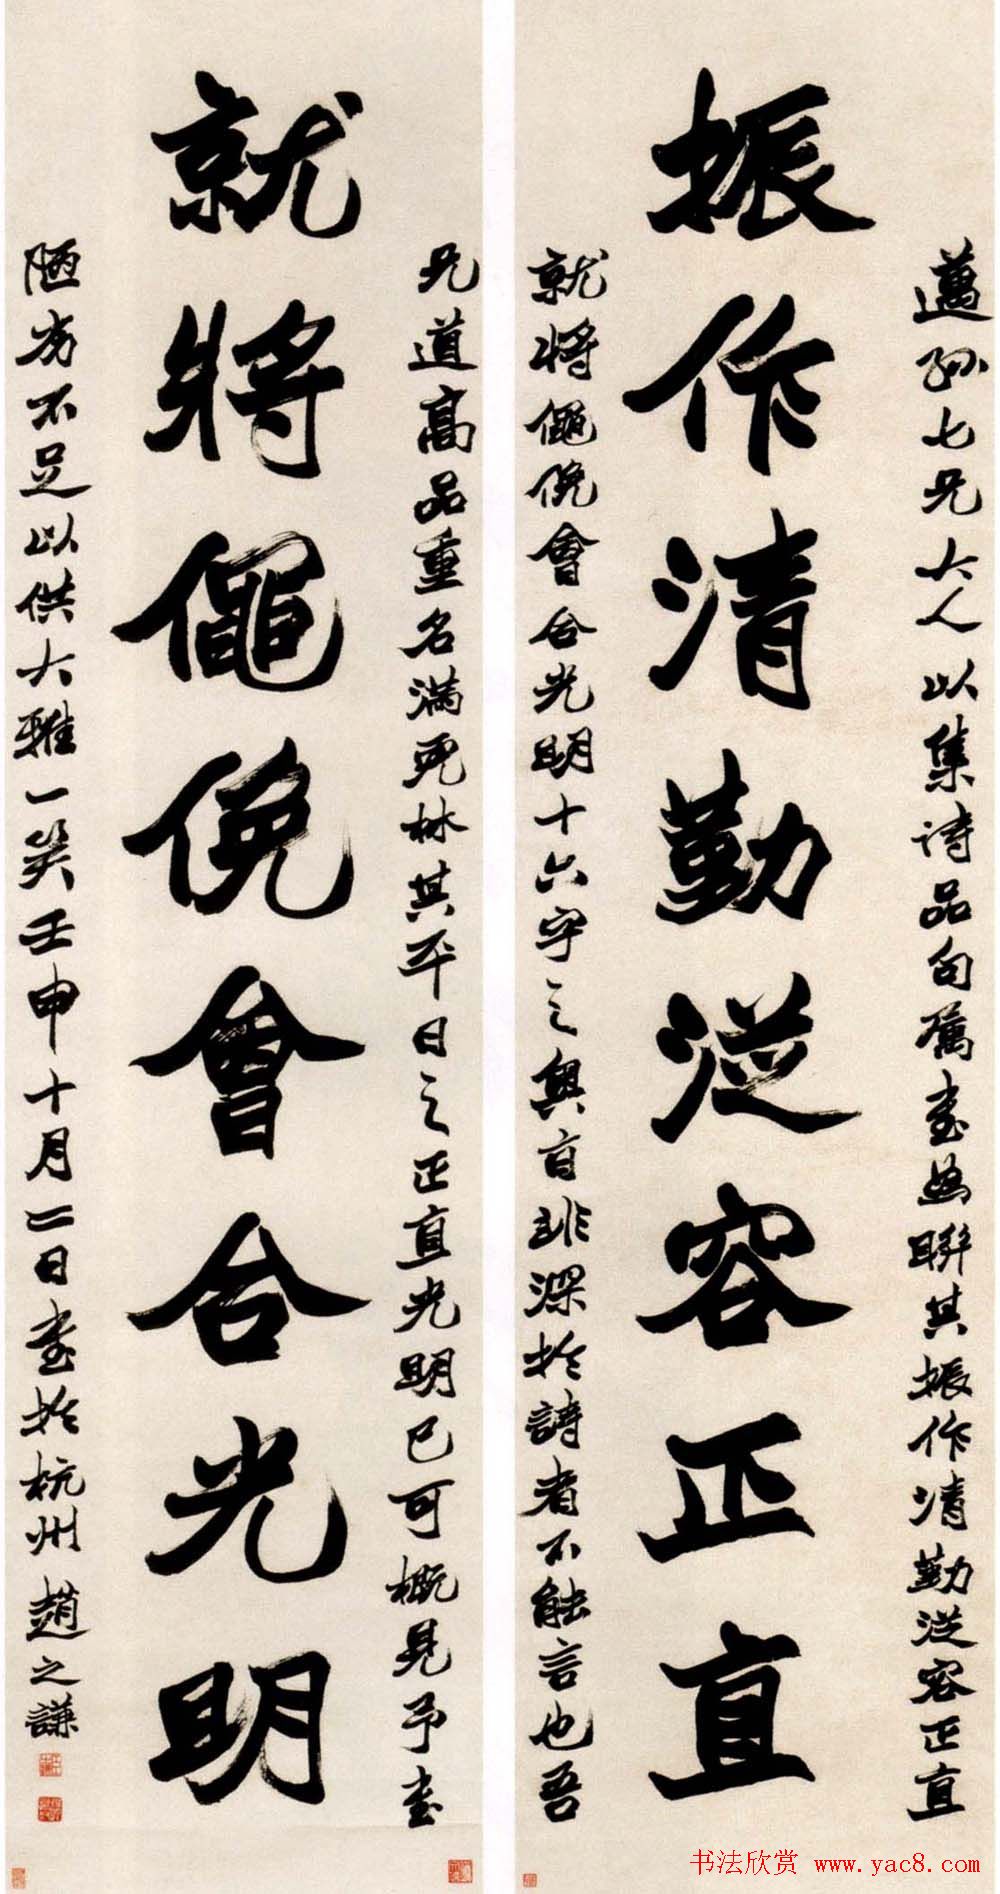 邁孫七兄大人以集詩品句屬書為聯其振作清勤從容正直
振作清勤從容正直
就將僶俛會合光明十六字之奧旨非深於詩者不能言也吾
兄道高品重名滿死林其平日之正直光明已可概見予書
就將僶俛會合光明
陋劣不足以供大雅一笑壬申十月二日書於杭州趙之謙
书法欣赏 www.yac8.com